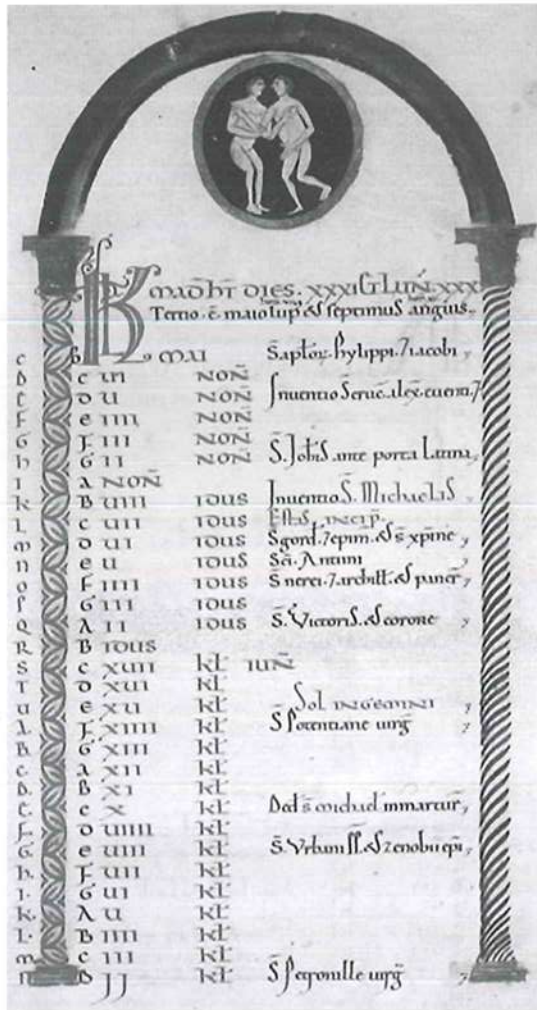 KL MAĪ. HT̄ DIES. XXXI. G LUŃ. XXX
Tertio. ē. maio lup' est septimus anguis.
c B KL MAI S̄. aptor. phylippi. 7 iacobi
D c UI NOÑ
E D U NOÑ Inuentio S̄ cruć. alex. euenti. 7
F e IIII NOÑ
G F III NOÑ
h G II NOÑ S. Joh̄is ante porta Latinā
I A NOÑ
K B UIII IDUS Inuentio S̄. Michaelis
L c UII IDUS
m D UI IDUS S̄. gord. 7 epim. & s̄ xpine
n e U IDUS S̄c̄i. Antimi
o F IIII IDUS S̄ nerei. 7 archill. & pancr̄
P G III IDUS
Q A II IDUS S̄. Victoris. & corone
R B IDUS
S c XUII KL IUÑ
T D XUI KL
u e XU KL Sol IN GEMINI
A. F XIIII KL S̄ Potentiane uirḡ
B G XIII KL
c. A XII KL
D. B XI KL
E. c X KL Ded s̄ michael in martur̄
F D UIIII KL
G e UIII KL S̄. Vrbani pp̄. & zenobii ep̄i
h. F UII KL
I. G UI KL
K. A U KL
L. B IIII KL
m c III KL
N D II KL S̄ Petronille uirḡ